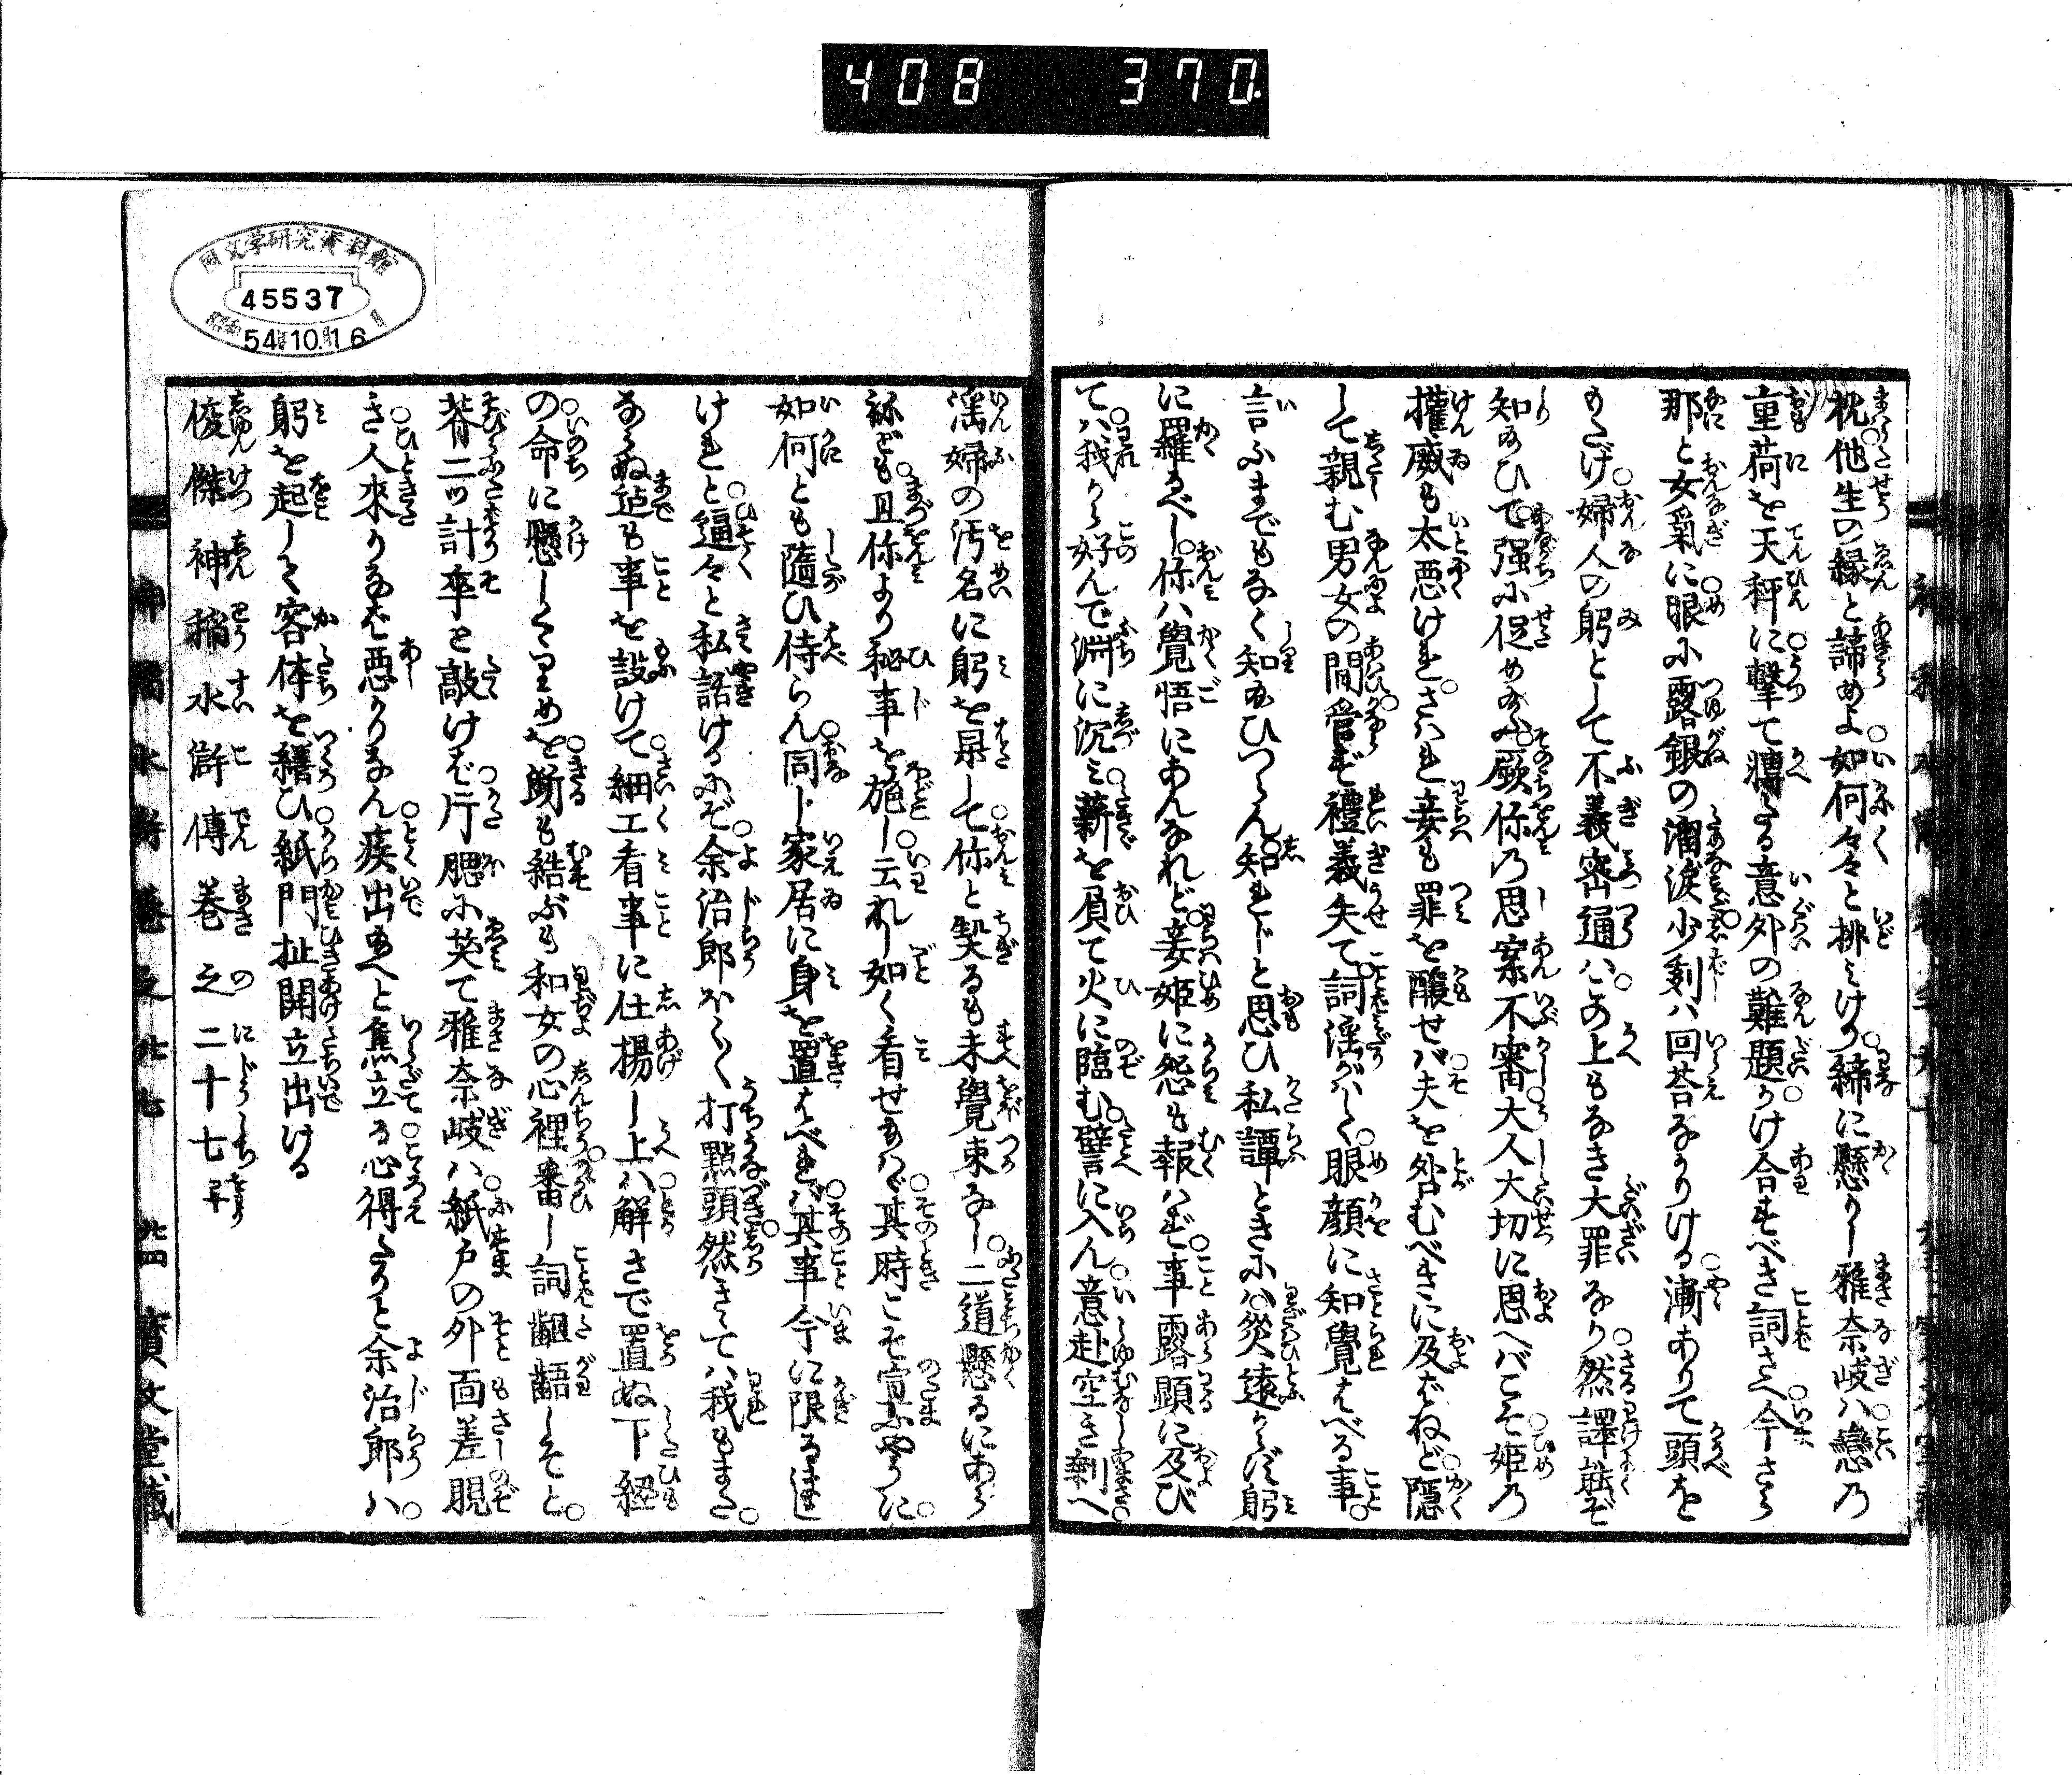 408 370.
国文学研究資料館
45537
昭和54.10.16
枕他生の縁と諦めよ如何々々と挑みける締に懸りし雅奈岐ハ戀の
重荷を天秤に擊て犒たる意外の難題うけ合すべき詞さへ今さら
那と女氣に眼に露銀の湎涙少刻ハ回荅なかりける漸ありて頭を
もたげ婦人の躬として不義密通ハこの上もなき大罪なり然譯能ぞ
知玉ひて强に促め玉ふ厥你の思案不審大人大切に思へバこそ姫の
權威も太悪けれさハれ妾も罪を釀せバ夫を咎むべきに及ばねど隱
して親む男女の間管ず禮義失て詞淫がハしく眼顔に知覺はべる事
言ふまでもなく知玉ひつらん知まじと思ひ私譚ときにハ災遠からず躬
に羅るべし你ハ覺悟にあんなれど妾姫に怨も報ハず事露顯に及び
てハ我から好んで淵に沉み薪を負て火に臨む譬に入ん意赴空き剰へ
淫婦の汚名に躬を晁して你と契るも未覺束なし二道懸るにあら
ねども且你より秘事を施し云れし如く看せあハゞ其時こそ宣ふやうに
如何とも隨ひ侍らん同じ家居に身を置はべれバ其事今に限るまじ
けれと逼々と私話けるにぞ余治郎ほく〳〵打點頭然きてハ我もまた
ならぬ迠も事を設けて細工看事に仕揚し上ハ解さで置ぬ下紐
の命に懸しくゝりめを斷も結ぶも和女の心裡番し詞齟齬しそと
脊二ツ計卒と敲けバ片腮に𥬇て雅奈岐ハ紙戸の外面差覗
き人來りなバ悪かりなん疾出玉へと焦立る心得たりと余治郎ハ
躬を起して客体を繕ひ紙門扯開立出ける
俊傑神稲水滸傳巻之二十七 尾
神稲水滸巻之廿七 廿四 寶文堂藏